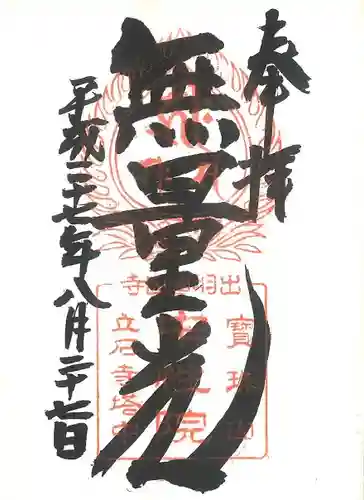 奉拝
無量光
平成二十七年八月二十七日
出羽山寺
寶珠山
性院
立石寺塔中